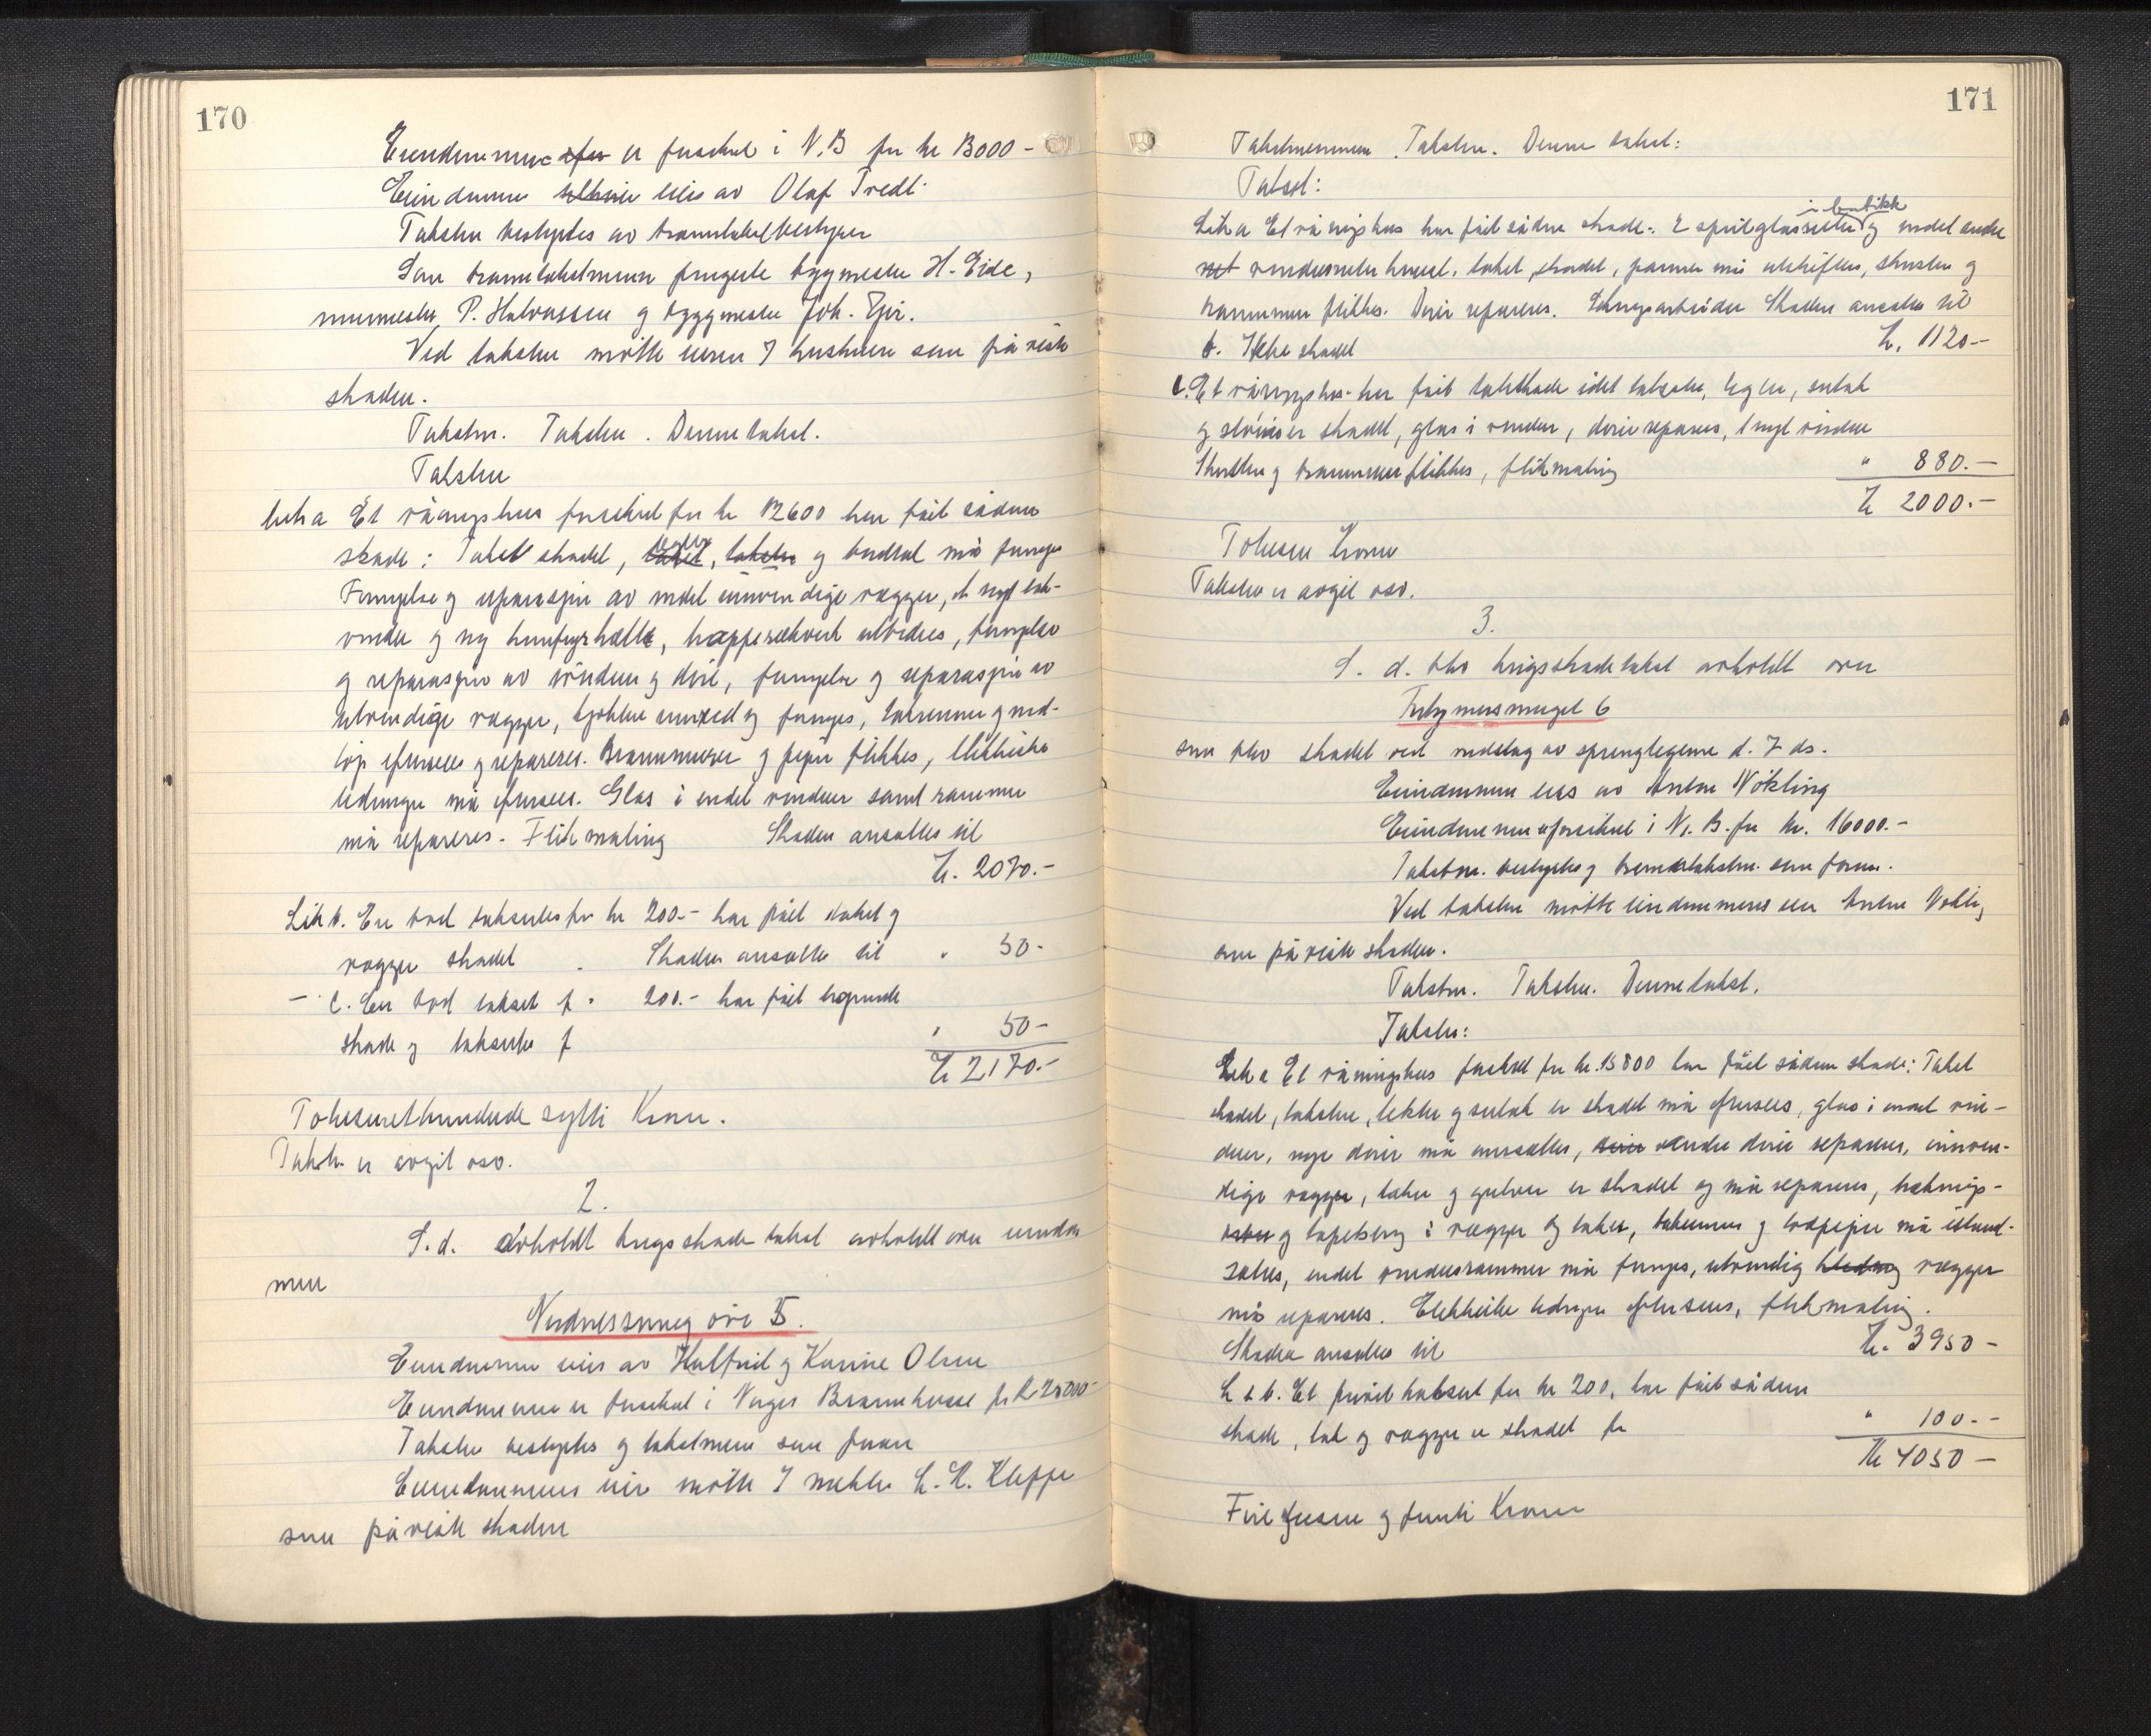 170
Eiendommen er forsikret i N.B for kr 13000 -
Eiendommen eies av Olaf Tredt.
Taksten bestyrtes av branntakstbestyrer
Som branntakstmenn fungerte byggmester H. Eide,
murmester P. Halvorsen og byggmester Joh.
Ved taksten møtte eieren I hustruen som påviste
skaden.
Takstm. Taksten. Denne takst.
Taksten
Litr a Et våningshus forsikret for kr 12600 har fåit sådan
skade: Taket skadet, og bordtak må fornyes
Fornyelse og reparasjon av endel innvendige vegger, et nytt tak-
vindu og ny, utbedres, fornyelse
og reparasjon av vinduer og dører, fornyelse og reparasjon av
utvendige vegger, og fornyes, takrenner og ned-
løp efterseees og repareres. Brannmurer og piper flikkes, elektriske
ledninger må efterseees. Glas i endel vinduer samt rammer
må repareres. Flikmaling Skaden ansettes til
kr. 2070.-
Litr b. En bod taksert for kr 200.- har fåit taket og
vegger skadet. Skaden ansettes til " 50-
- c. En bod takset f. " 200.- har fåit lignende
skade og takseres f " 50-
kr 2170.-
Totusenetthundrede sytti Kroner.
Takst. er avgit osv.
2.
S. d. avholdt krigsskadetakst avholdt over eiendom
men
Nordnessmug øvre 5.
Eiendommen eies av Halfrid og Karine Olsen
Eiendommen er forsikret i Norges Brannkasse for kr 25000-
Taksten bestyrtes og takstmenn som foran
Eiendommens eier møtte I mekler L. R. Kleppe
som påviste skaden
171
Takstmennene. Taksten. Denne takst:
Takst:
Litr a Et våningshus har fåit sådan skade. 2 speilglasruter i butikk og endel andre
vindusruter knust. taket skadet, panner må utskiftes, skorsten og
rammer flikkes. Dører repareres. Skaden ansettes til
b. Ikke skadet kr. 1120-
c. Et våningshus har fåit takskade idet taksten, legter, sutak
og er skadet, glas i vinduer, dører repareres, 1 nyt vindu
Skorsten og brannmur flikkes, flikmaling " 880.-
kr 2000.-
Totusen Kroner
Taksten er avgit osv.
3.
S. d. blev krigsskadetakst avholdt over
smuget 6
som blev skadet ved nedslag av sprenglegeme d. 7 ds.
Eiendommen eies av Andrea Nökling
Eiendommen er forsikret i N. B. for kr. 16000.-
Takstm. bestyrtes og branntakstm. som foran.
Ved taksten møtte eiendommens eier Andrea Nøkling
som påviste skaden.
Takstm. Taksten. Denne takst.
Taksten:
Litr a Et våningshus forsikret for kr. 15800 har fåit sådan skade: Taket
skadet, taksten, lekter og sutak er skadet må efterseees, glas i endel vin-
duer, nye dører må innsettes, andre dører repareres, innven-
dige vegger, taker og gulver er skadet og må repareres,
og tapetsering i vegger og taker, takrenner og lodpiper må istand-
settes, endel vindusrammer må fornyes, utvendig vegger
må repareres. Elektriske ledninger efterseees, flikmaling.
Skaden ansettes til kr. 3950 -
Litr b. Et privet taksert for kr 200, har fåit sådan
skade, tak og vegger er skadet for " 100.-
Kr 4050 -
Fire tusen og femti Kroner